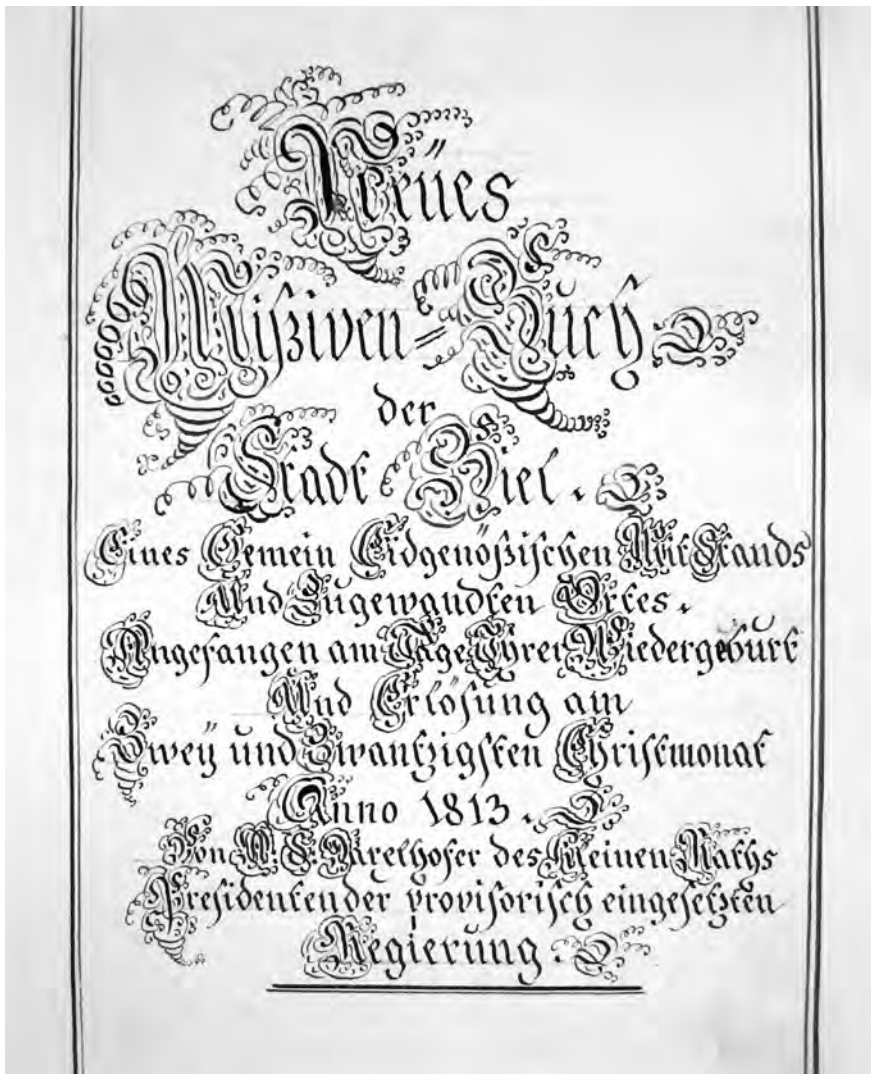 Neües
Mißiven=Buch
der
Stadt Biel.
Eines Gemein Eidgenößischen Mit Stands
Und Zugewandten Ortes.
Angefangen am Tage Ihrer Wiedergeburt
Und Erlösung am
Zweÿ und Zwantzigsten Christmonat
Anno 1813.
Von des Kleinen Raths
Presidenten der provisorisch eingesetzten
Regierung.